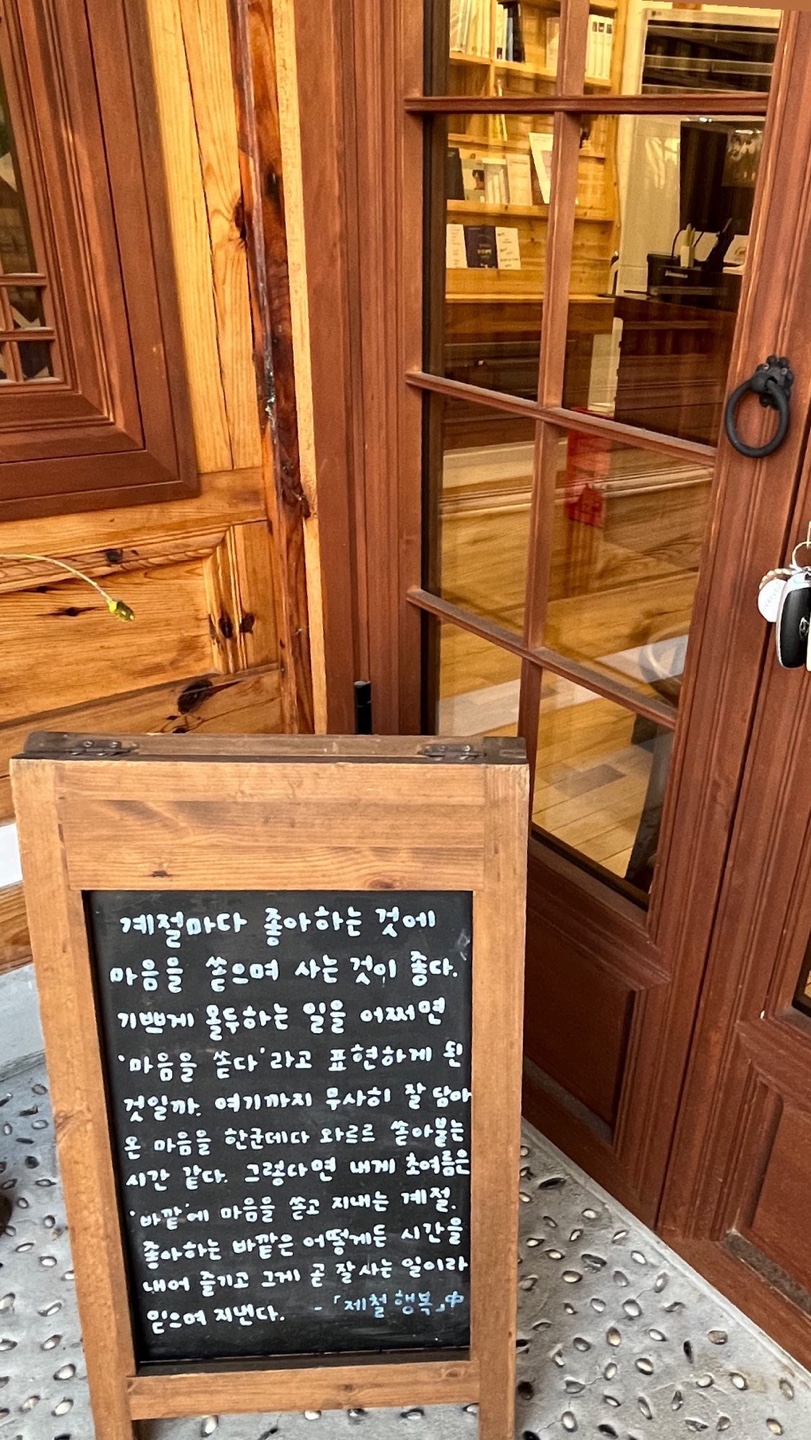 계절마다 좋아하는 것에
마음을 쏟으며 사는 것이 좋다.
기쁘게 몰두하는 일을 어쩌면
'마음을 쏟다'라고 표현하게 된
것일까. 여기까지 무사히 잘 담아
온 마음을 한군데다 와르르 쏟아붓는
시간 같다. 그렇다면 내게 초여름은
'바깥'에 마음을 쏟고 지내는 계절.
좋아하는 바깥은 어떻게든 시간을
내어 즐기고 그게 곧 잘 사는 일이라
믿으며 지낸다. -「제철 행복」中